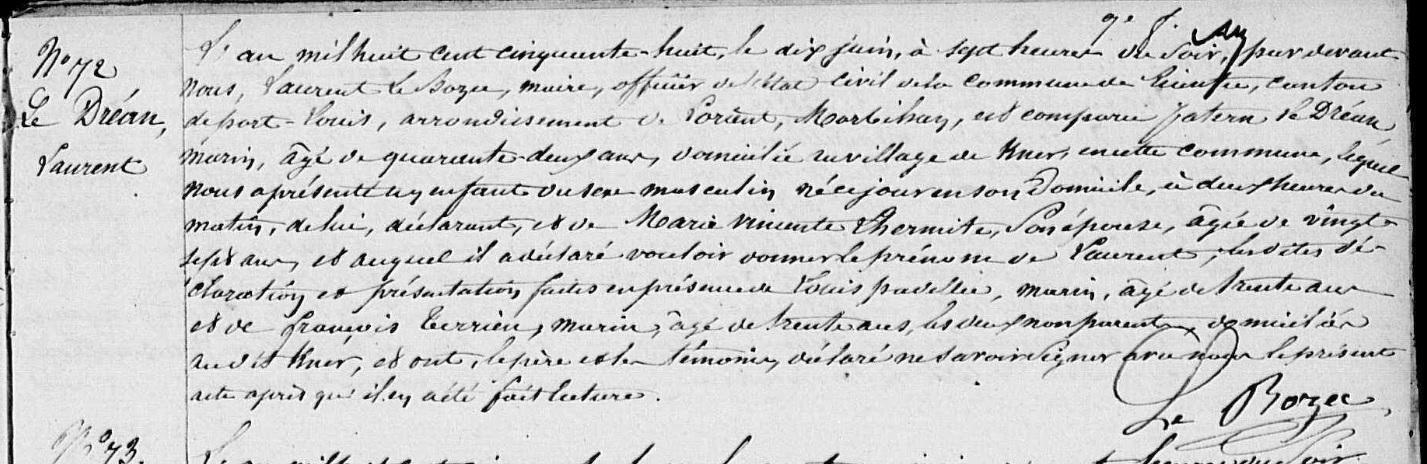 N° 72
Le Dréan,
Laurent
L'an mil huit cent cinquante-huit, le dix juin, à sept heures du soir, par devant
nous, Laurent Le Bozec, maire, officier de l'état civil de la commune de, canton
de port-Louis, arrondissement de Lorient, Morbihan, est comparu patern le Dréan
marin, âgé de quarante-deux ans, domicilié au village de Kner, en cette commune, lequel
nous a présenté un enfant du sexe masculin né ce jour en son Domicile, à deux heures du
matin, de lui, déclarant, et de Marie Vincente Lhermite, Son épouse, âgée de vingt-
sept ans, et auquel il a déclaré vouloir donner le prénom de Laurent, lesdites dé-
claration et présentation faites en présence de Louis padellec, marin, âgé de trente ans
et de françois Terrien, marin, âgé de trente ans, les deux non parents, domiciliés
au dit Kner, et ont, le père et les témoins, déclaré ne savoir signer avec nous le présent
acte après qu'il en a été fait lecture.
Le Bozec
N° 73.